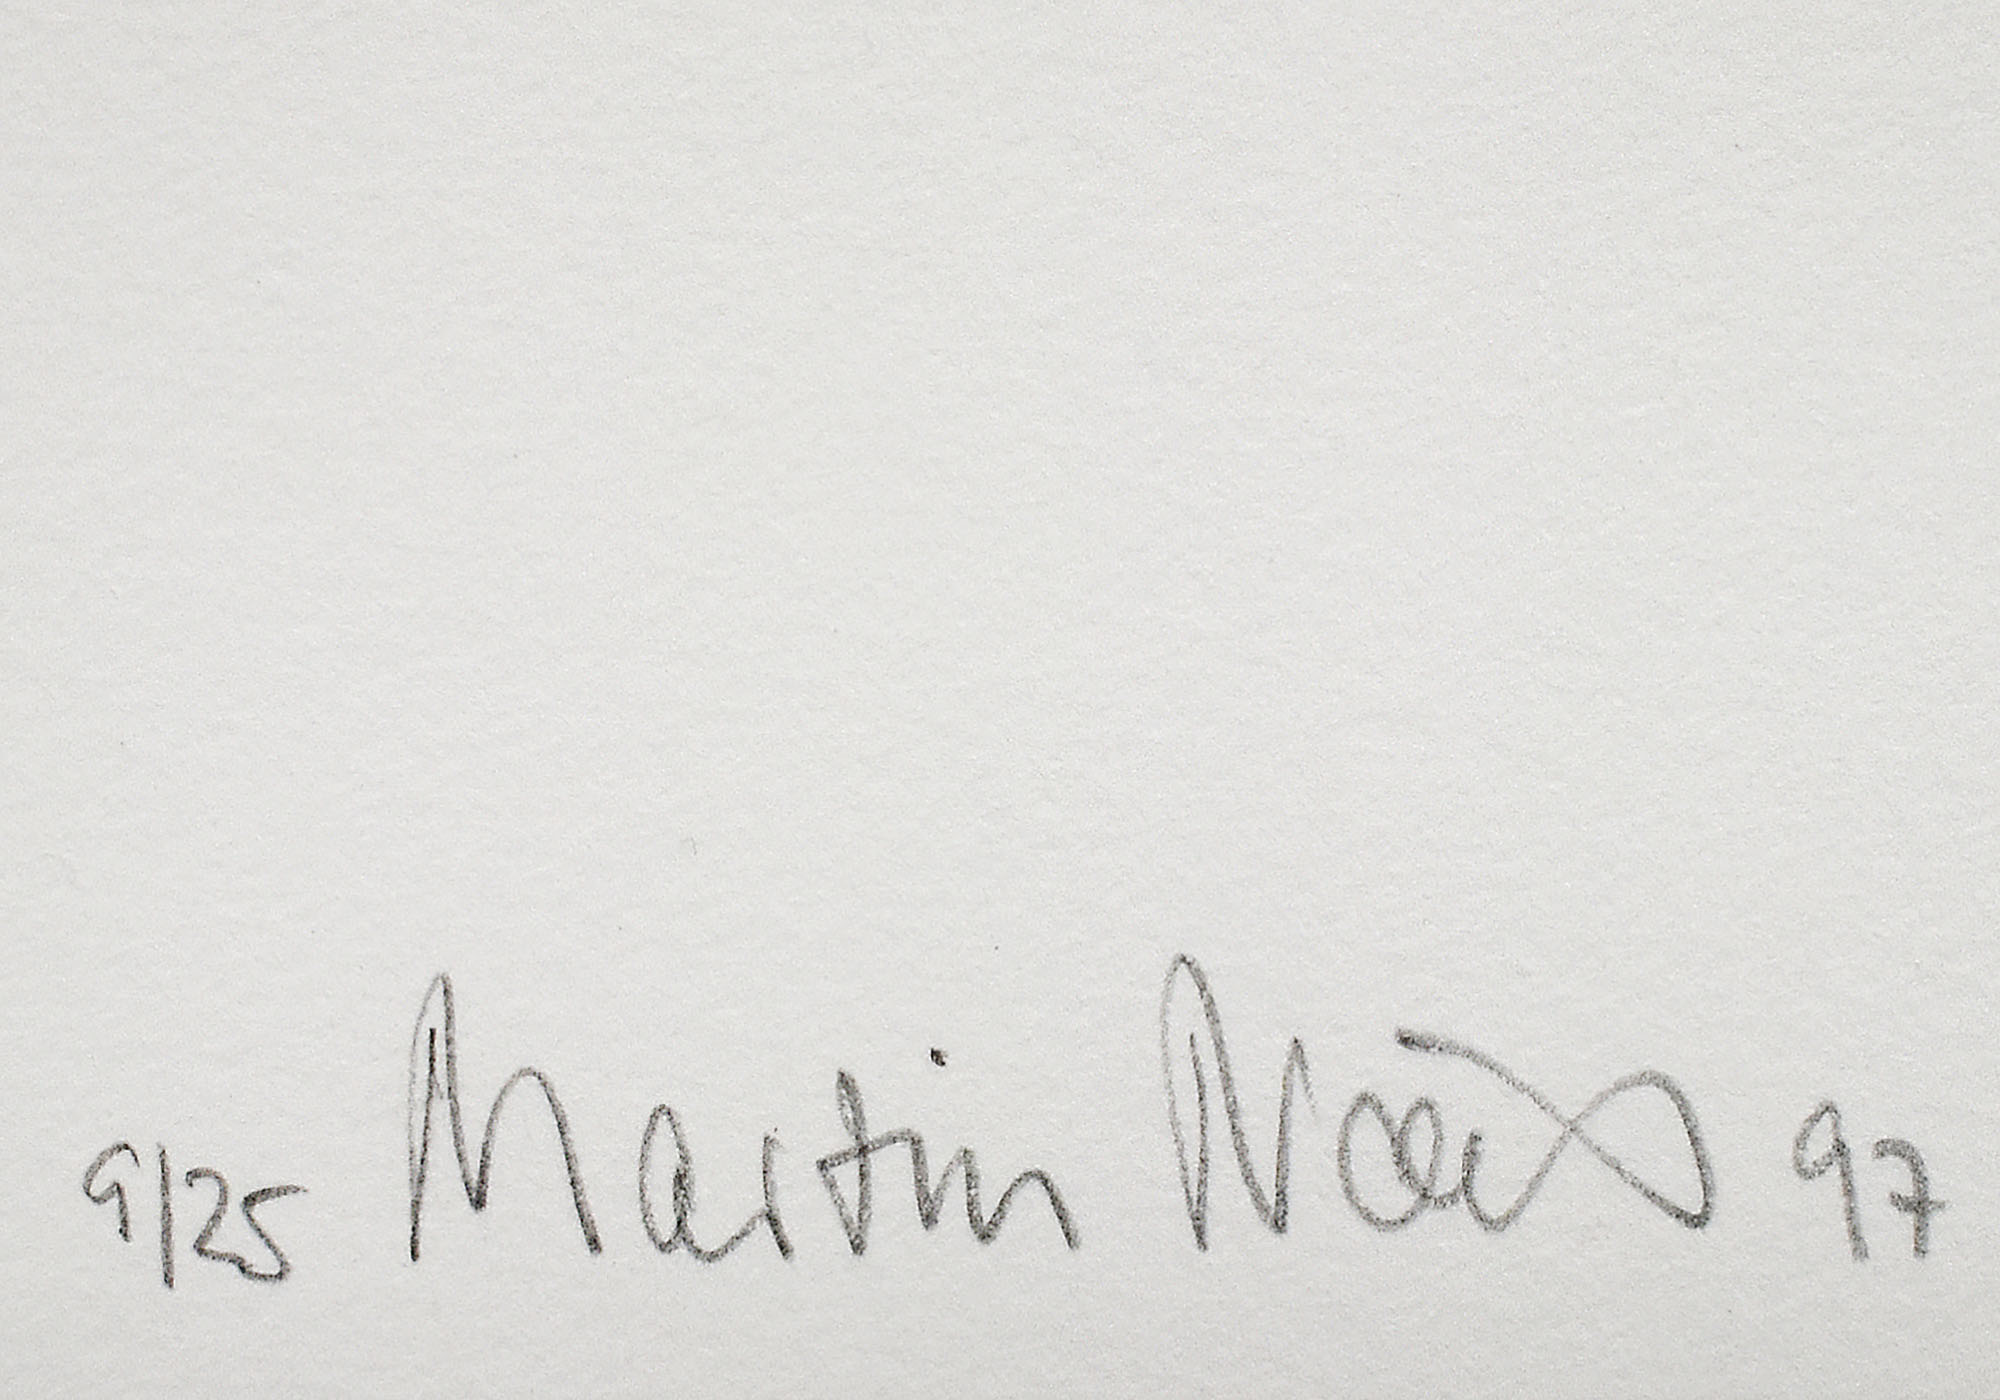 9/25 Martin Noël 97